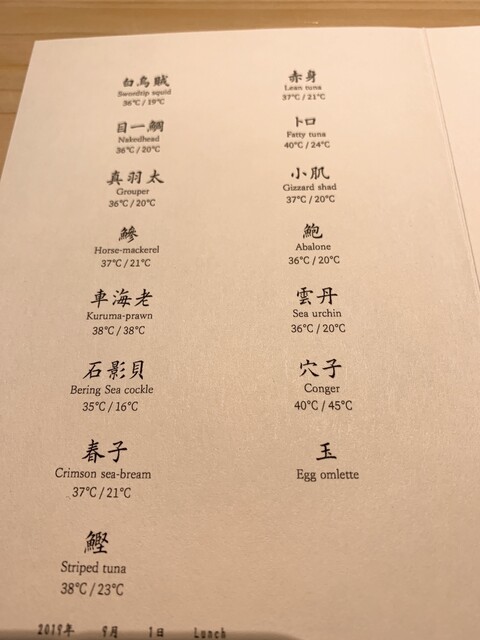 白烏賊
Swordtip squid
36℃/19℃
目一鯛
Nakedhead
36℃/20℃
真羽太
Grouper
36℃/20℃
鰺
Horse-mackerel
37℃/21℃
車海老
Kuruma-prawn
38℃/38℃
石影貝
Bering Sea cockle
35℃/16℃
春子
Crimson sea-bream
37℃/21℃
鰹
Striped tuna
38℃/23℃
赤身
Lean tuna
37℃/21℃
トロ
Fatty tuna
40℃/24℃
小肌
Gizzard shad
37℃/20℃
鮑
Abalone
36℃/20℃
雲丹
Sea urchin
36℃/20℃
穴子
Conger
40℃/45℃
玉
Egg omlette
2019年 9月 1日 Lunch